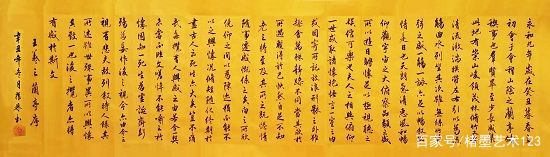 永和九年歲在癸丑暮春之
初會于會稽山陰之蘭亭脩
禊事也群賢畢至少長咸集
此地有崇山峻領茂林脩竹又有
清流激湍映帶左右引以為流
觴曲水列坐其次雖無絲竹管
弦之盛一觴一詠亦足以暢敘幽
情是日也天朗氣清惠風和暢
仰觀宇宙之大俯察品類之盛
所以遊目騁懷足以極視聽之
娛信可樂也夫人之相與俯仰
一世或取諸懷抱悟言一室之內
或因寄所託放浪形骸之外雖
趣舍萬殊靜躁不同當其欣
於所遇暫得於己快然自足不知
老之將至及其所之既惓情
隨事遷感慨係之矣向之所欣
俛仰之間以為陳迹猶不能不
以之興懷況脩短隨化終期於
盡古人云死生亦大矣豈不痛哉
每攬昔人興感之由若合一契
未嘗不臨文嗟悼不能喻之於
懷固知一死生為虛誕齊彭
殤為妄作後之視今亦由今之
視昔悲夫故列敘時人錄其
所述雖世殊事異所以興懷
其致一也後之攬者亦將
有感於斯文
王羲之蘭亭序
辛丑年
百家号/楮墨艺术123